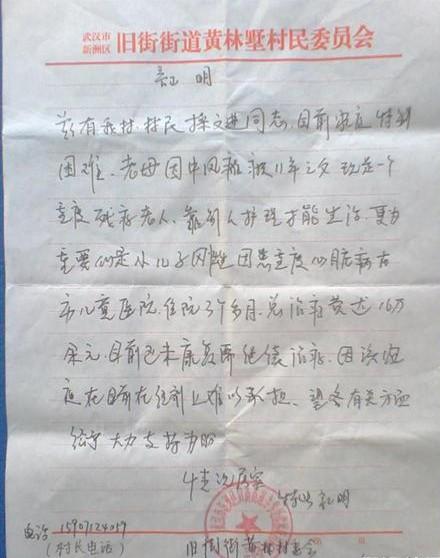 武汉市
新洲区 旧街街道黄林墅村民委员会
证明
兹有我村村民操文进同志,目前家庭特别
困难、老母因中风瘫痪八年之久现是一个
重度残疾老人、靠别人护理才能生活、更为
重要的是小儿子刚进因患重度心脏病在
市儿童医院住院3个多月、总治疗费达16万
余元、目前还未康复需继续治疗、因该家
庭在目前在经济上难以承担、望各有关方面
给于大力支持为盼
情况属实
特此证明
电话 15907124059
(村长电话) 旧街街黄林村委会